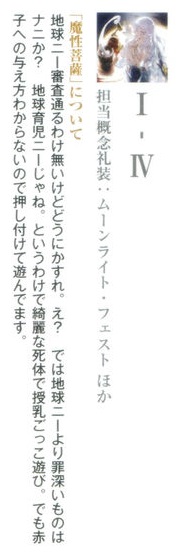 I-Ⅳ
担当概念礼装：ムーンライト・フェスト ほか
「魔性菩薩」について
地球ニー審査通るわけ無いけどどうにかすれ。え？　では地球ニーより罪深いものは
ナニか？　地球育児ニーじゃね。というわけで綺麗な死体で授乳ごっこ遊び。でも赤
子への与え方わからないので押し付けて遊んでます。